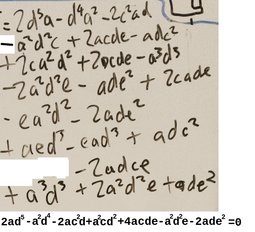 =2d⁵a-d⁴a²-2c²ad
-a²d²c+2acde-adc²
+2ca²d²+2acde-a³d³
-2a²d²e-ade²+2cade
-ea²d²-2ade²
+aed³-ead³+adc²
-2adce
+a³d³+2a²d²e+ade²
2ad⁵-a²d⁴-2ac²d+a²cd²+4acde-a²d²e-2ade²=0